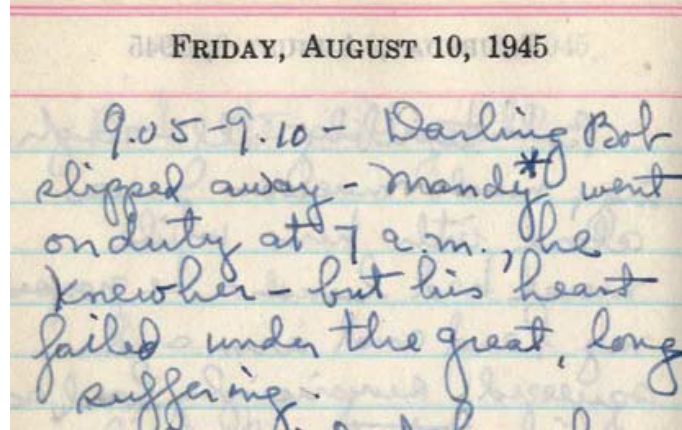 FRIDAY, AUGUST 10, 1945
9.05-9.10 - Darling Bob
slipped away - Mandy* went
on duty at 7 a.m., he
knew her - but his heart
failed under the great, long
suffering.